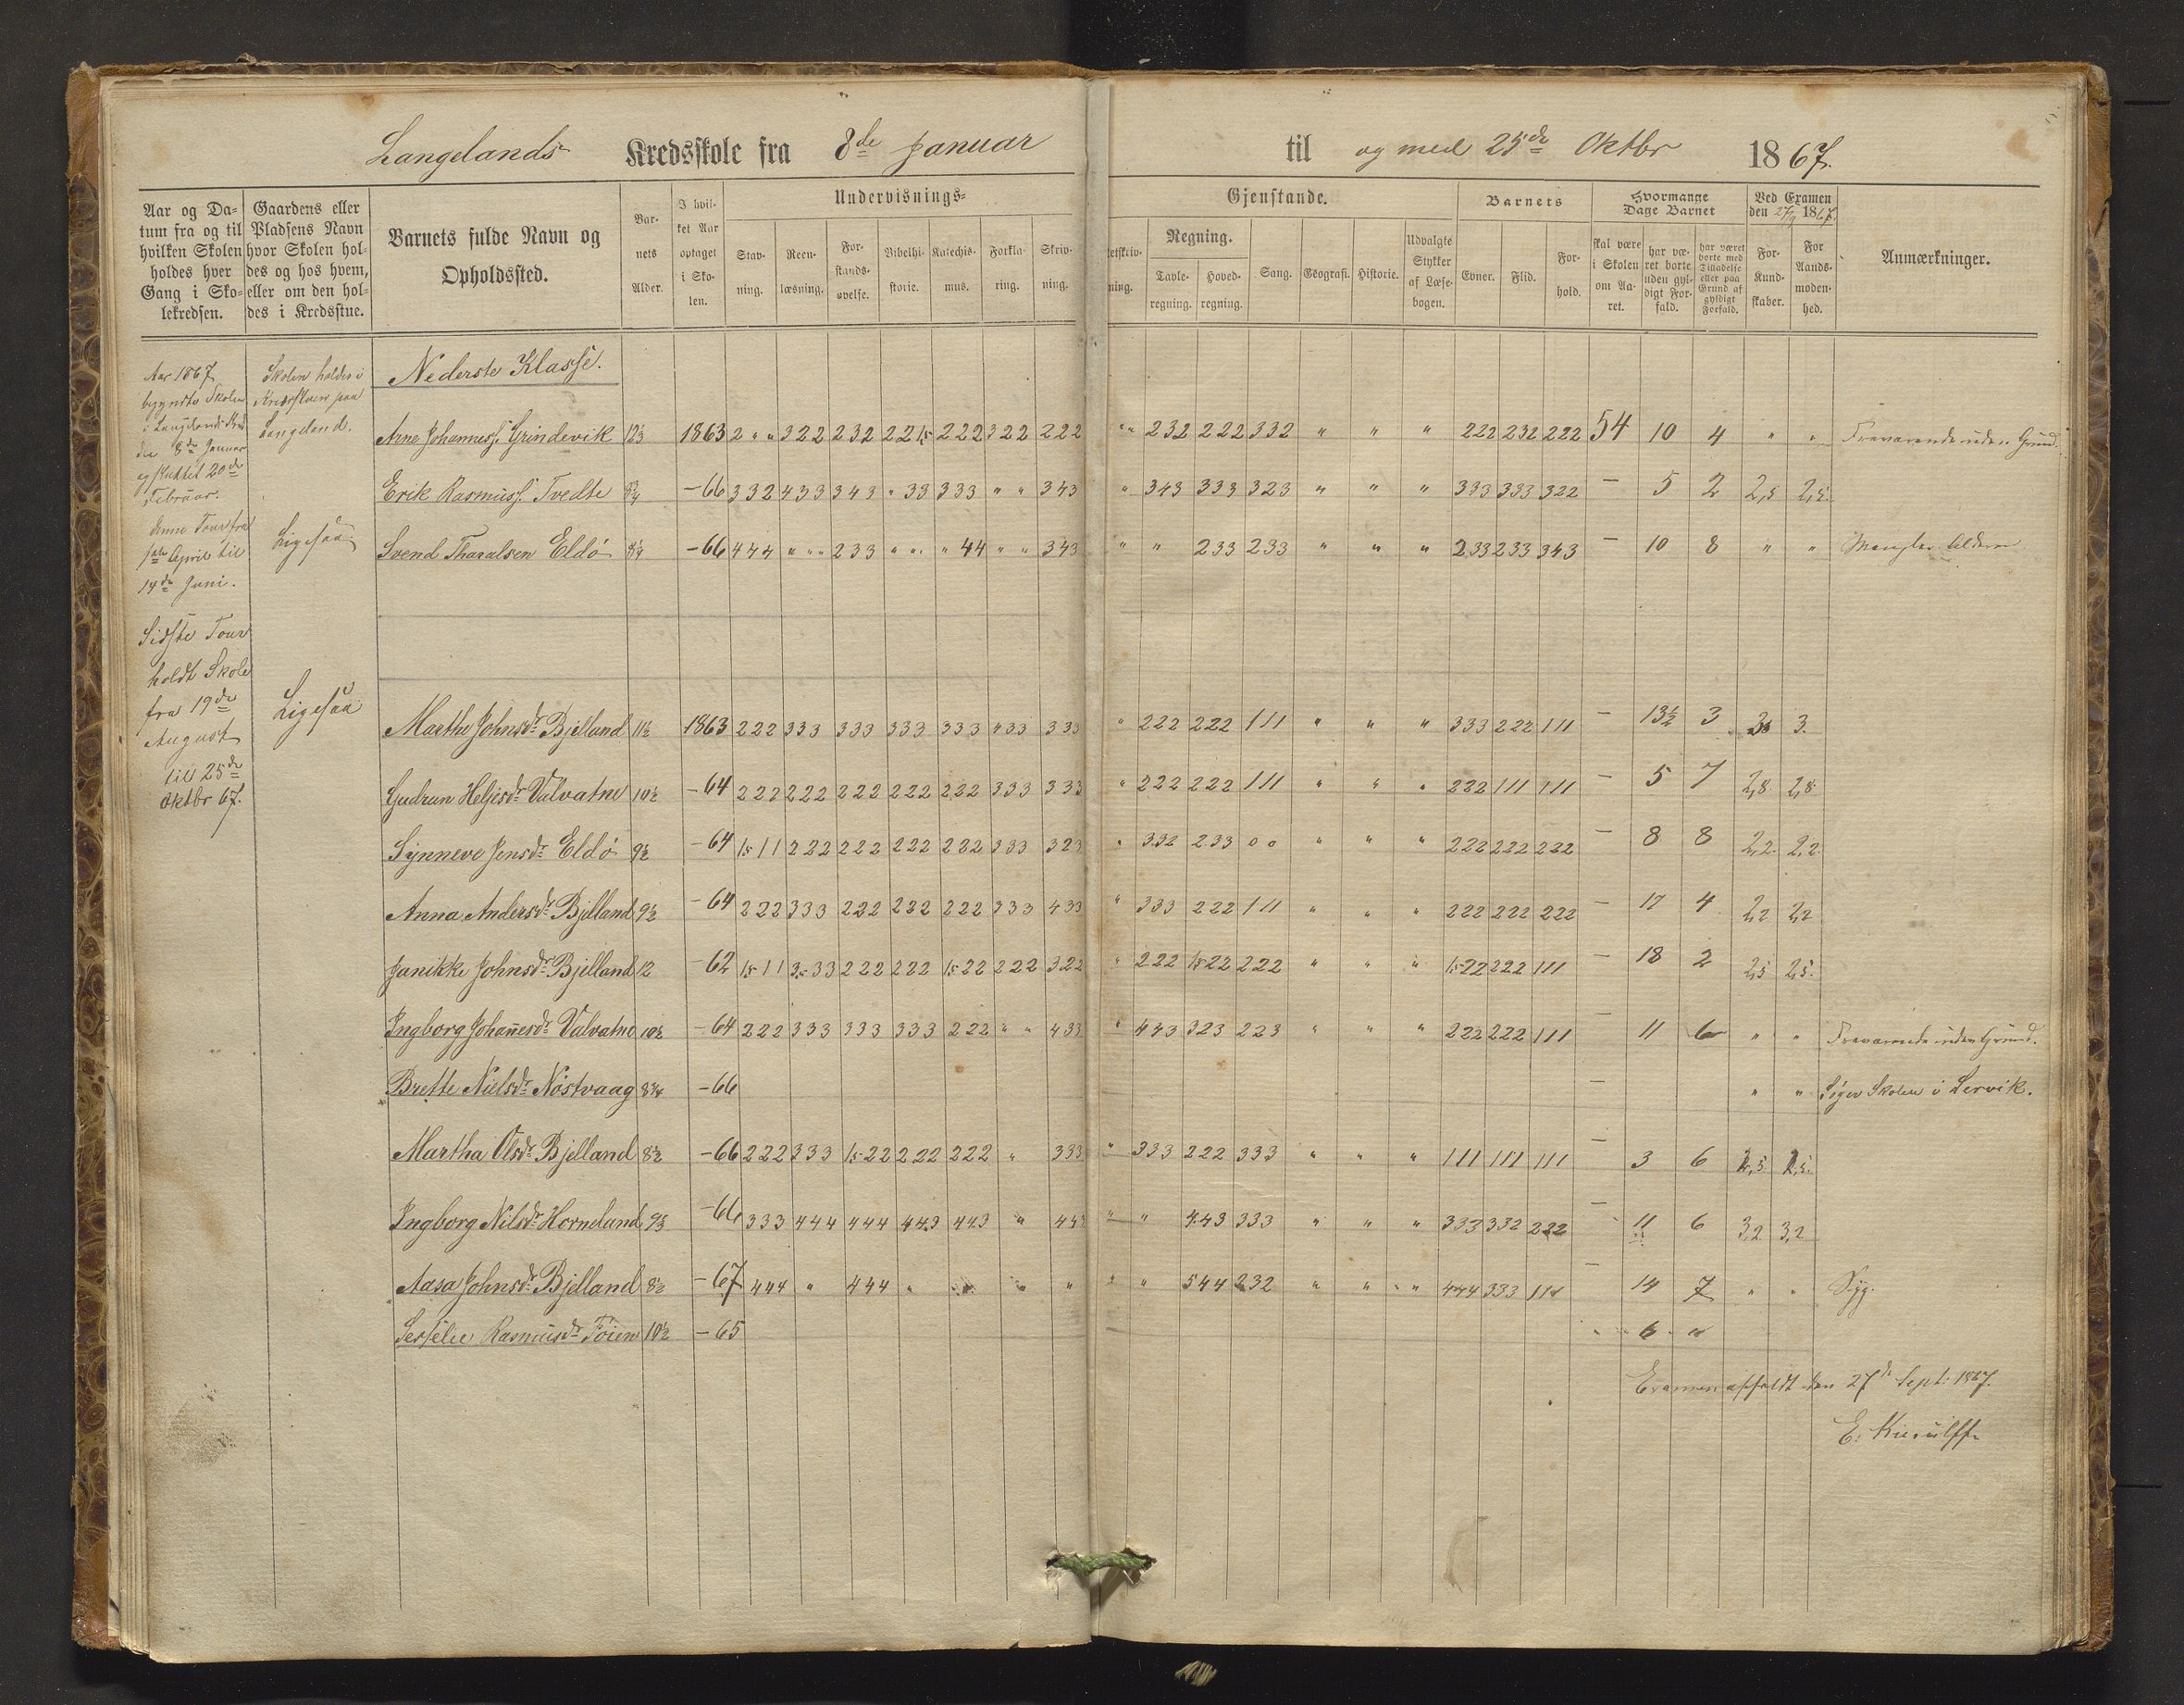 Langelands Kredsskole fra 8de Januar til og med 25de Oktbr 1867.
Aar og Datum fra og til hvilken Skolen holdes hver Gang i Skolekredsen.
Gaardens eller Pladsens Navn hvor Skolen holdes og hos hvem, eller om den holdes i Kredsstue.
Barnets fulde Navn og Opholdssted.
Barnets Alder.
I hvilket Aar optaget i Skolen.
Undervisnings= Gjenstande.
Stavning. Reenlæsning. Forstandsøvelse. Bibelhistorie. Katechismus. Forklaring. Skrivning.
Regning. Tavleregning. Hovedregning. Sang. Geografi. Historie. Udvalgte Stykker af Læsebogen.
Barnets Evner. Flid. Forhold.
Hvormange Dage Barnet
skal være i Skolen om Aaret. har været borte uden gyldigt Forfald. har været borte med Tilladelse eller paa Grund af gyldigt Forfald.
Ved Examen den 27/9 1867.
For Kundskaber. For Aandsmodenhed.
Anmærkninger.
Aar 1867
begyndte Skolen
i Langelands Kreds
den 8de Januar
og sluttet 20de
Februar.
Anden Tour fra
1ste April til
14de Juni.
Sidste Tour
holdt Skole
fra 19de
August
til 25de
Oktbr 67.
Skolen holdes i
Kredsstuen paa
Langeland.
Ligesaa
Ligesaa
Nederste Klasse.
Arne Johanness. Grindevik 12½ 1863 2 " " 322 232 2215 222 322 222 " " 232 222 332 " " " 222 232 222 54 10 4 " " Fraværende uden Grund.
Erik Rasmuss. Tvedte -66 332 433 343 " 33 333 " " 343 " 343 333 323 " " " 333 333 322 — 5 2 2,5 2,5.
Svend Tharalsen Eldø -66 444 " " " 233 " " " " 44 " " 343 " " 233 233 " " " 233 233 343 — 10 8 " " Mangler Alderen
Marthe Johnsdr Bjelland 11½ 1863 222 333 333 333 333 433 333 " 222 222 111 " " " 333 222 111 — 13½ 3 3.
Gudrun Heljesdr Valvatne 10½ -64 222 222 222 222 222 333 333 " 222 222 111 " " " 222 111 111 — 5 7 2,8 2,8
Synneve Jensdr Eldø 9½ -64 1511 222 222 222 222 333 323 " 332 233 0 0 " " " 222 222 222 — 8 8 2,2. 2,2.
Anna Andersdr Bjelland 9½ -64 222 333 222 222 222 333 433 " 333 222 111 " " " 222 222 222 — 17 4 2,2 2,2
Janikke Johnsdr Bjelland 12 -62 1511 3,533 222 222 1522 222 322 " 222 1522 222 " " " 1522 222 111 — 18 2 2,5 2,5.
Ingborg Johanesdr Valvatne 10½ -64 222 333 333 333 222 " " 433 " 443 323 223 " " " 222 222 111 — 11 6 " " Fraværende uden Grund.
Brette Nielsdr Nøstvaag 8¾ -66 — " " Søger Skolen i Lervik.
Martha Olsdr Bjelland 8½ -66 222 333 1522 222 222 " 333 " 333 222 333 " " " 111 111 111 — 3 6
Ingborg Nilsdr Horneland 9½ -66 333 444 444 443 443 " 444 " " 443 333 " " " 333 332 222 — 11 6 3,2 3,2
Aasa Johnsdr Bjelland 8½ -67 444 " 444 " " " " " " 544 232 " " " 444 333 111 — 14 7 " " Syg.
Sesselie Rasmusdr Töien 10½ -65 — 6 "
Examen afholdt den 27de Sept. 1867.
E. Kierulff.